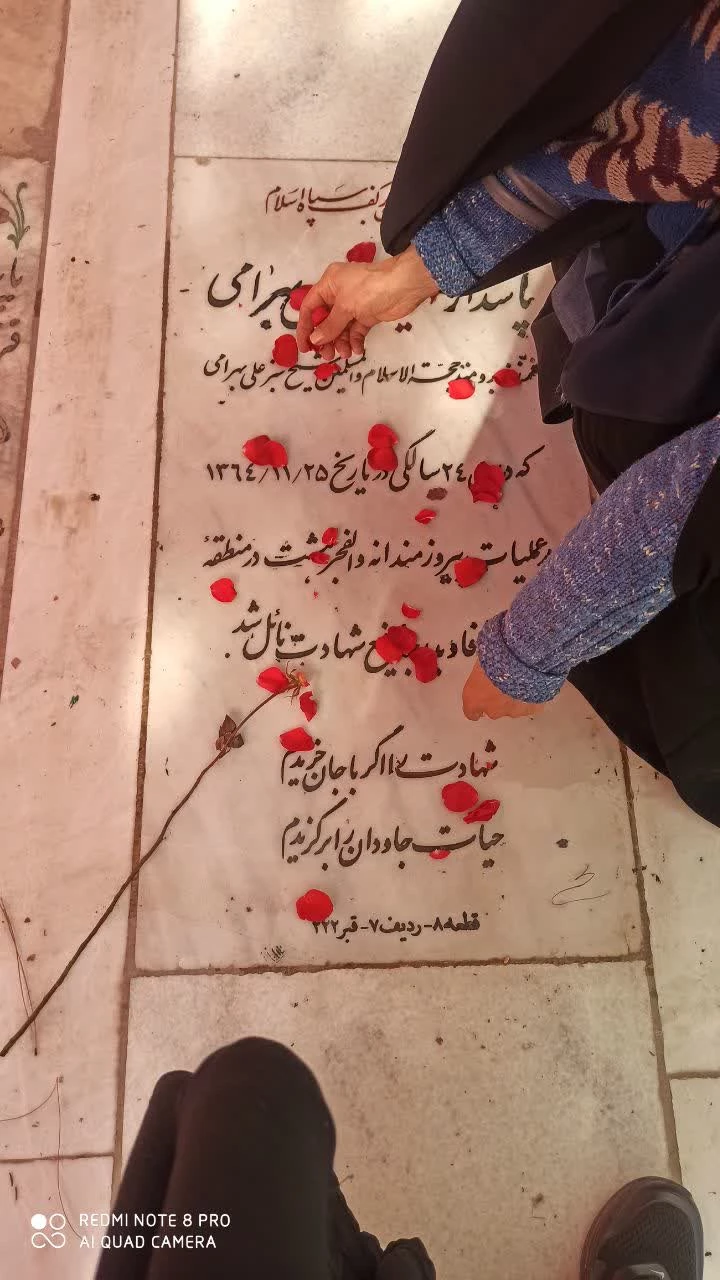 سپاه اسلام
پاسدار بهرامی
فرزند برومند حجة الاسلام والمسلمین شیخ سبز علی بهرامی
که در سن ۲۴ سالگی در تاریخ ۱۳۶۴/۱۱/۲۵
در عملیات پیروزمندانه والفجر هشت در منطقهٔ
فاو به رفیع شهادت نائل شد.
شهادت را اگر با جان خریدیم
حیات جاودان را برگزیدیم
قطعه ۸ - ردیف ۷ - قبر ۲۲۲
REDMI NOTE 8 PRO
AI QUAD CAMERA